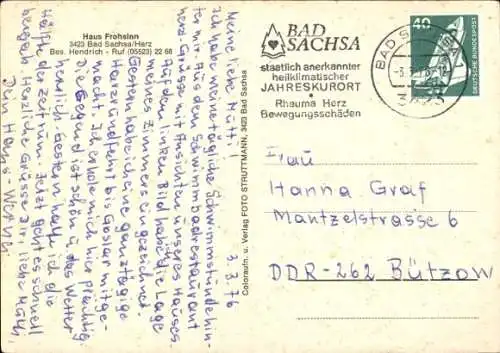 Haus Frohsinn
3423 Bad Sachsa/Harz
Bes. Hendrich - Ruf (05523) 22 68
3.3.76
Meine liebe Mutti!
Ich habe meine tägliche Schwimmstunde hin-
ter mir. Aus dem Schwimmbadrestaurant
herzl. Grüsse mit Ansichten unseres Hauses.
Auf dem linken Bild habe ich die Lage
meines Zimmers eingezeichnet.
Gestern habe ich eine ganztägige
Harzrundfahrt bis Goslar mitge-
macht. Ich erhole mich hier prächtig.
Die Gegend ist schön u. das Wetter
herrlich. Gestern hatte ich die
Hälfte der Zeit rum. Jetzt geht es schnell
bergab. Herzliche Grüsse Dir, liebe Mutti
Dein Hans-Werner
Coloraufn. u. Verlag FOTO STRUTTMANN, 3423 Bad Sachsa
BAD
SACHSA
staatlich anerkannter
heilklimatischer
JAHRESKURORT
•
Rheuma Herz
Bewegungsschäden
BAD S
40
DEUTSCHE BUNDESPOST
Frau
Hanna Graf
Mantzelstrasse 6
DDR-262 Bützow